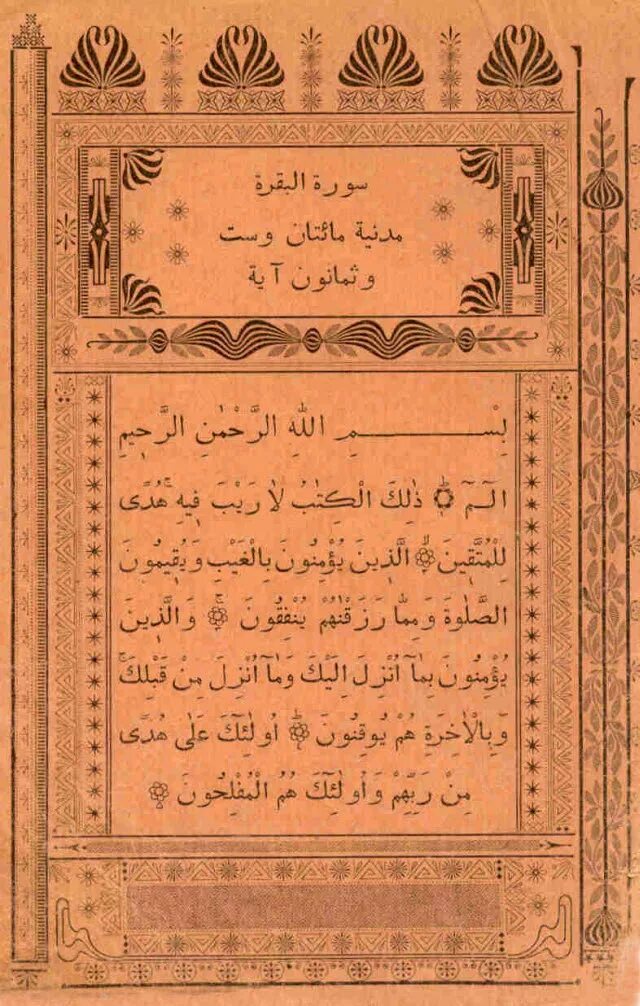 سورة البقرة
مدنية مائتان وست
وثمانون آية
بِسْمِ اللهِ الرَّحْمٰنِ الرَّحِيمِ
الٓمٓ ۞ ذٰلِكَ الْكِتٰبُ لَا رَيْبَ فِيهِ ۚ هُدًى
لِلْمُتَّقِينَ ۞ الَّذِينَ يُؤْمِنُونَ بِالْغَيْبِ وَيُقِيمُونَ
الصَّلٰوةَ وَمِمَّا رَزَقْنٰهُمْ يُنْفِقُونَ ۞ وَالَّذِينَ
يُؤْمِنُونَ بِمَآ اُنْزِلَ اِلَيْكَ وَمَآ اُنْزِلَ مِنْ قَبْلِكَ ۚ
وَبِالْاٰخِرَةِ هُمْ يُوقِنُونَ ۞ اُولٰٓئِكَ عَلٰى هُدًى
مِنْ رَبِّهِمْ وَاُولٰٓئِكَ هُمُ الْمُفْلِحُونَ ۞